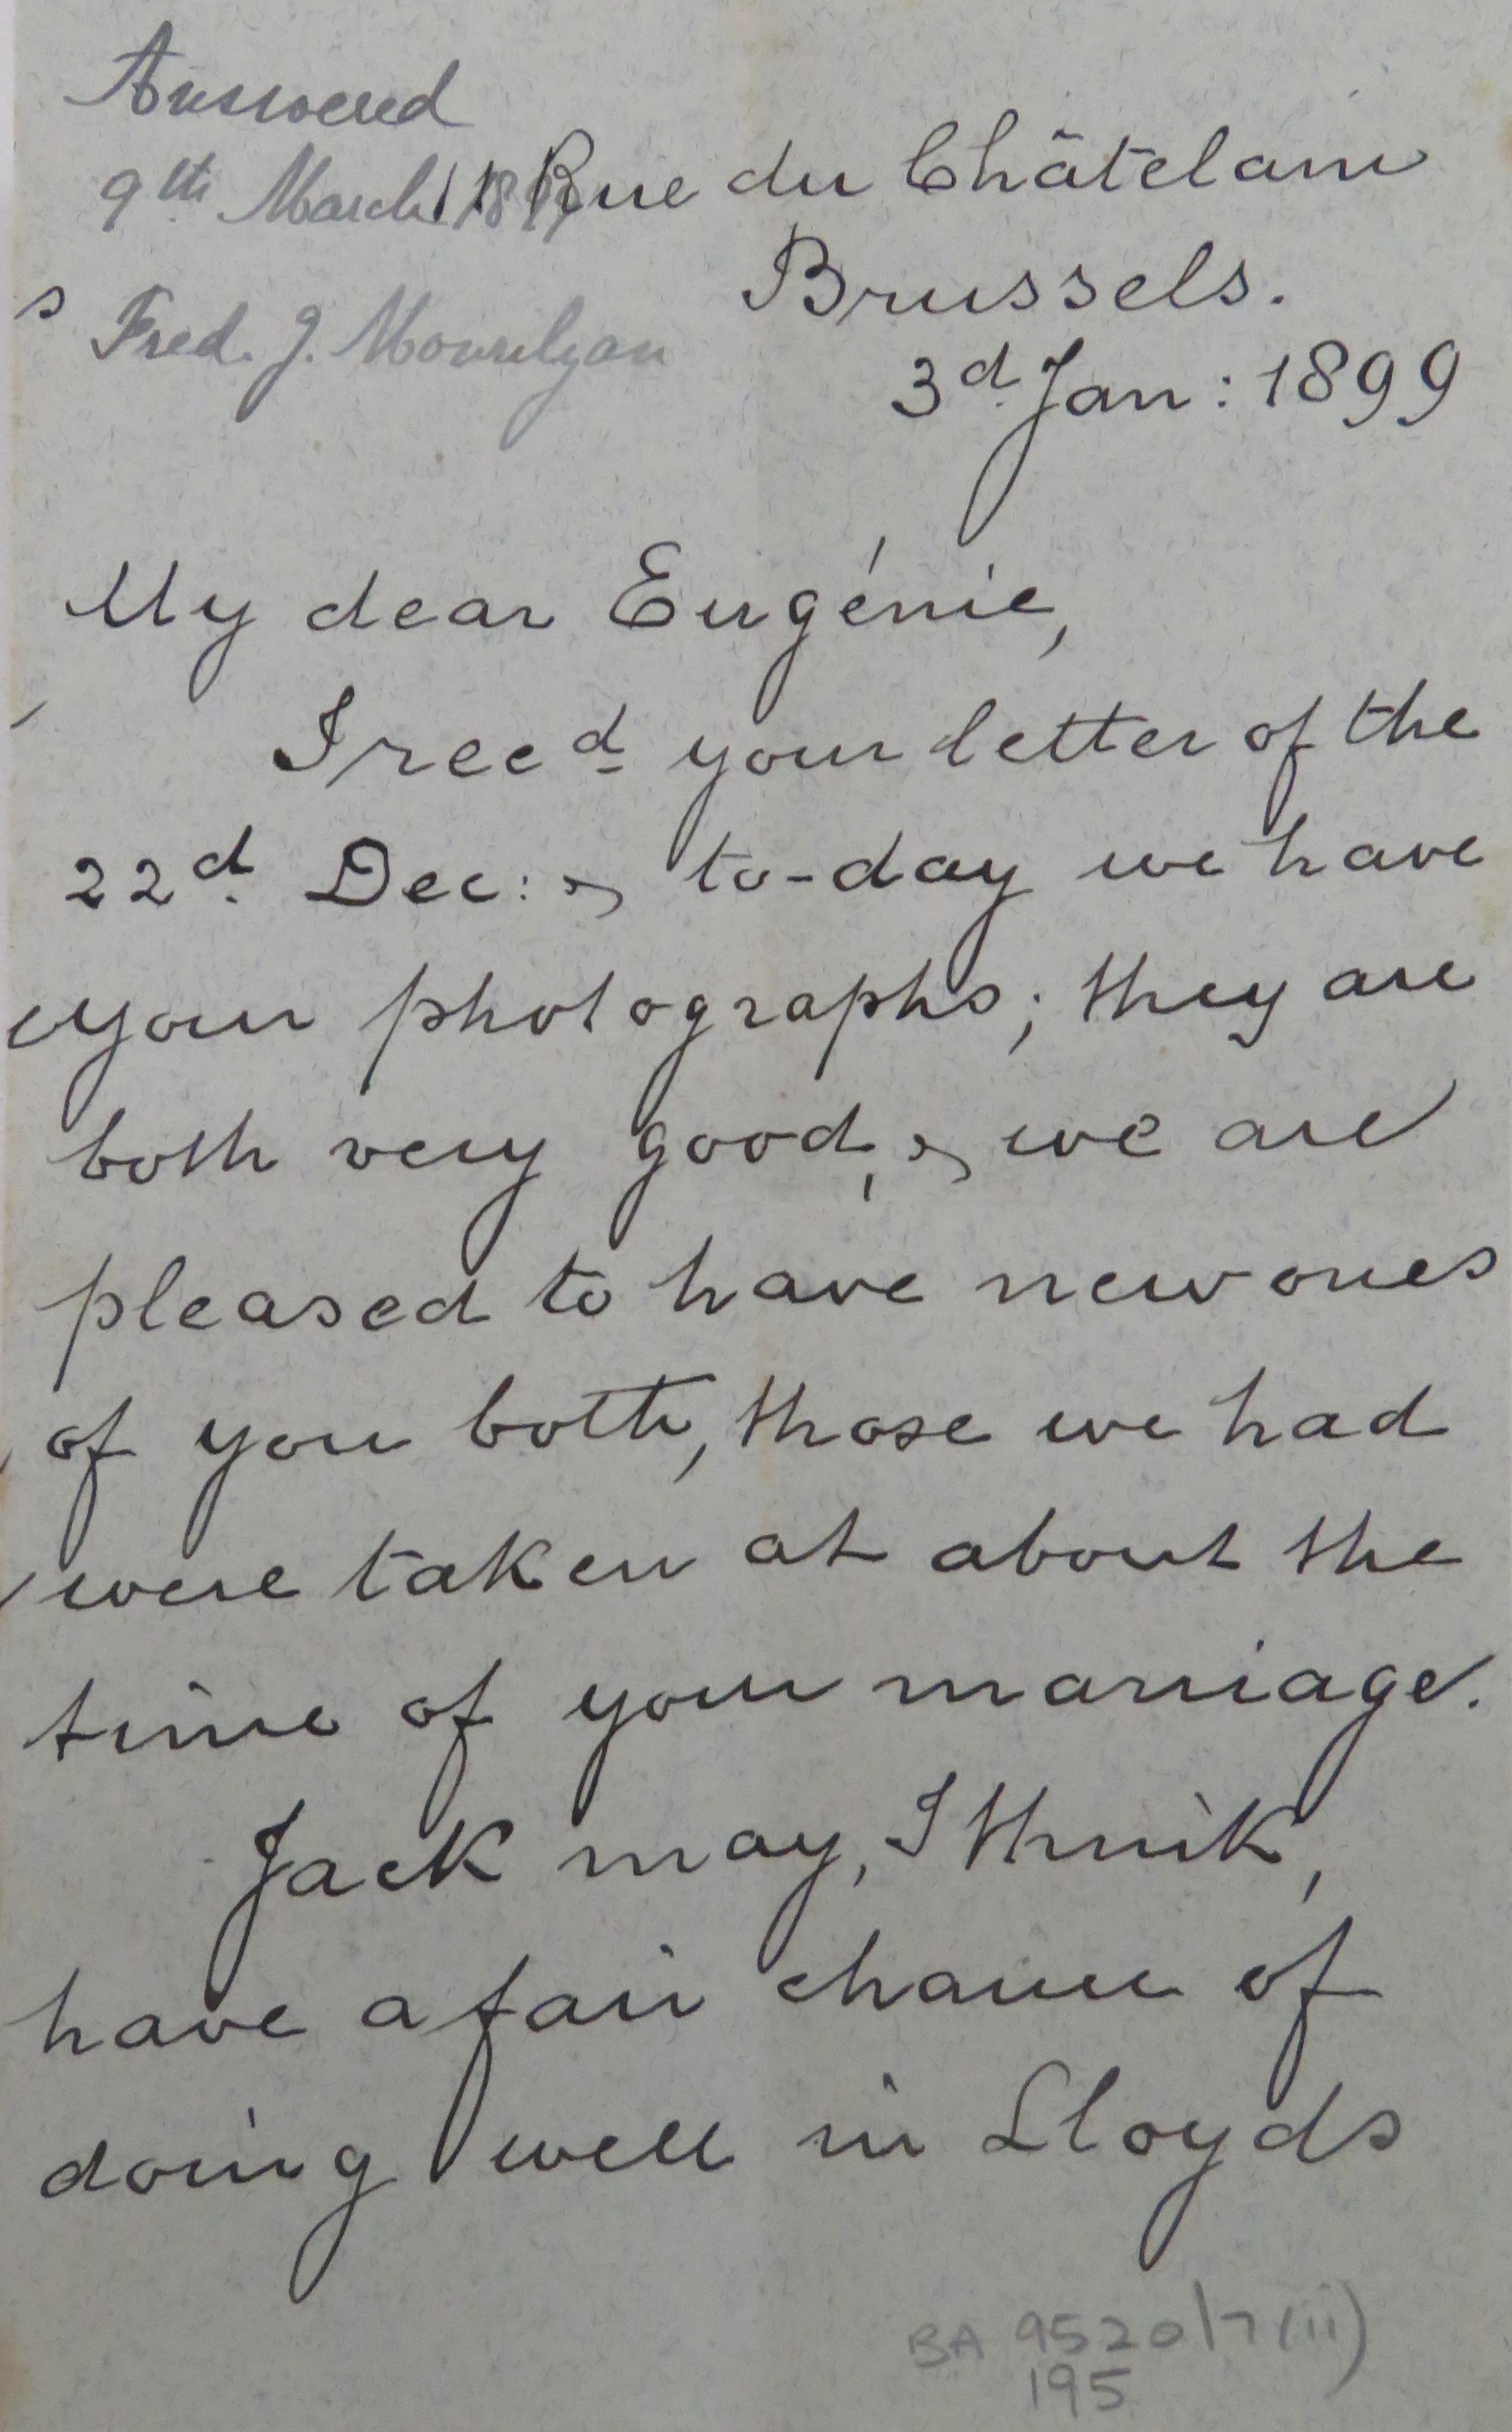 Answered
9th March 1899
Fred. J. Mourilyan
11 Rue du Châtelain
Brussels.
3d. Jan: 1899
My dear Eugénie,
I recd your letter of the
22d. Dec: & to-day we have
your photographs; they are
both very good, & we are
pleased to have new ones
of you both, those we had
were taken at about the
time of your marriage.
Jack may, I think,
have a fair chance of
doing well in Lloyds
BA 9520/7(ii)
195